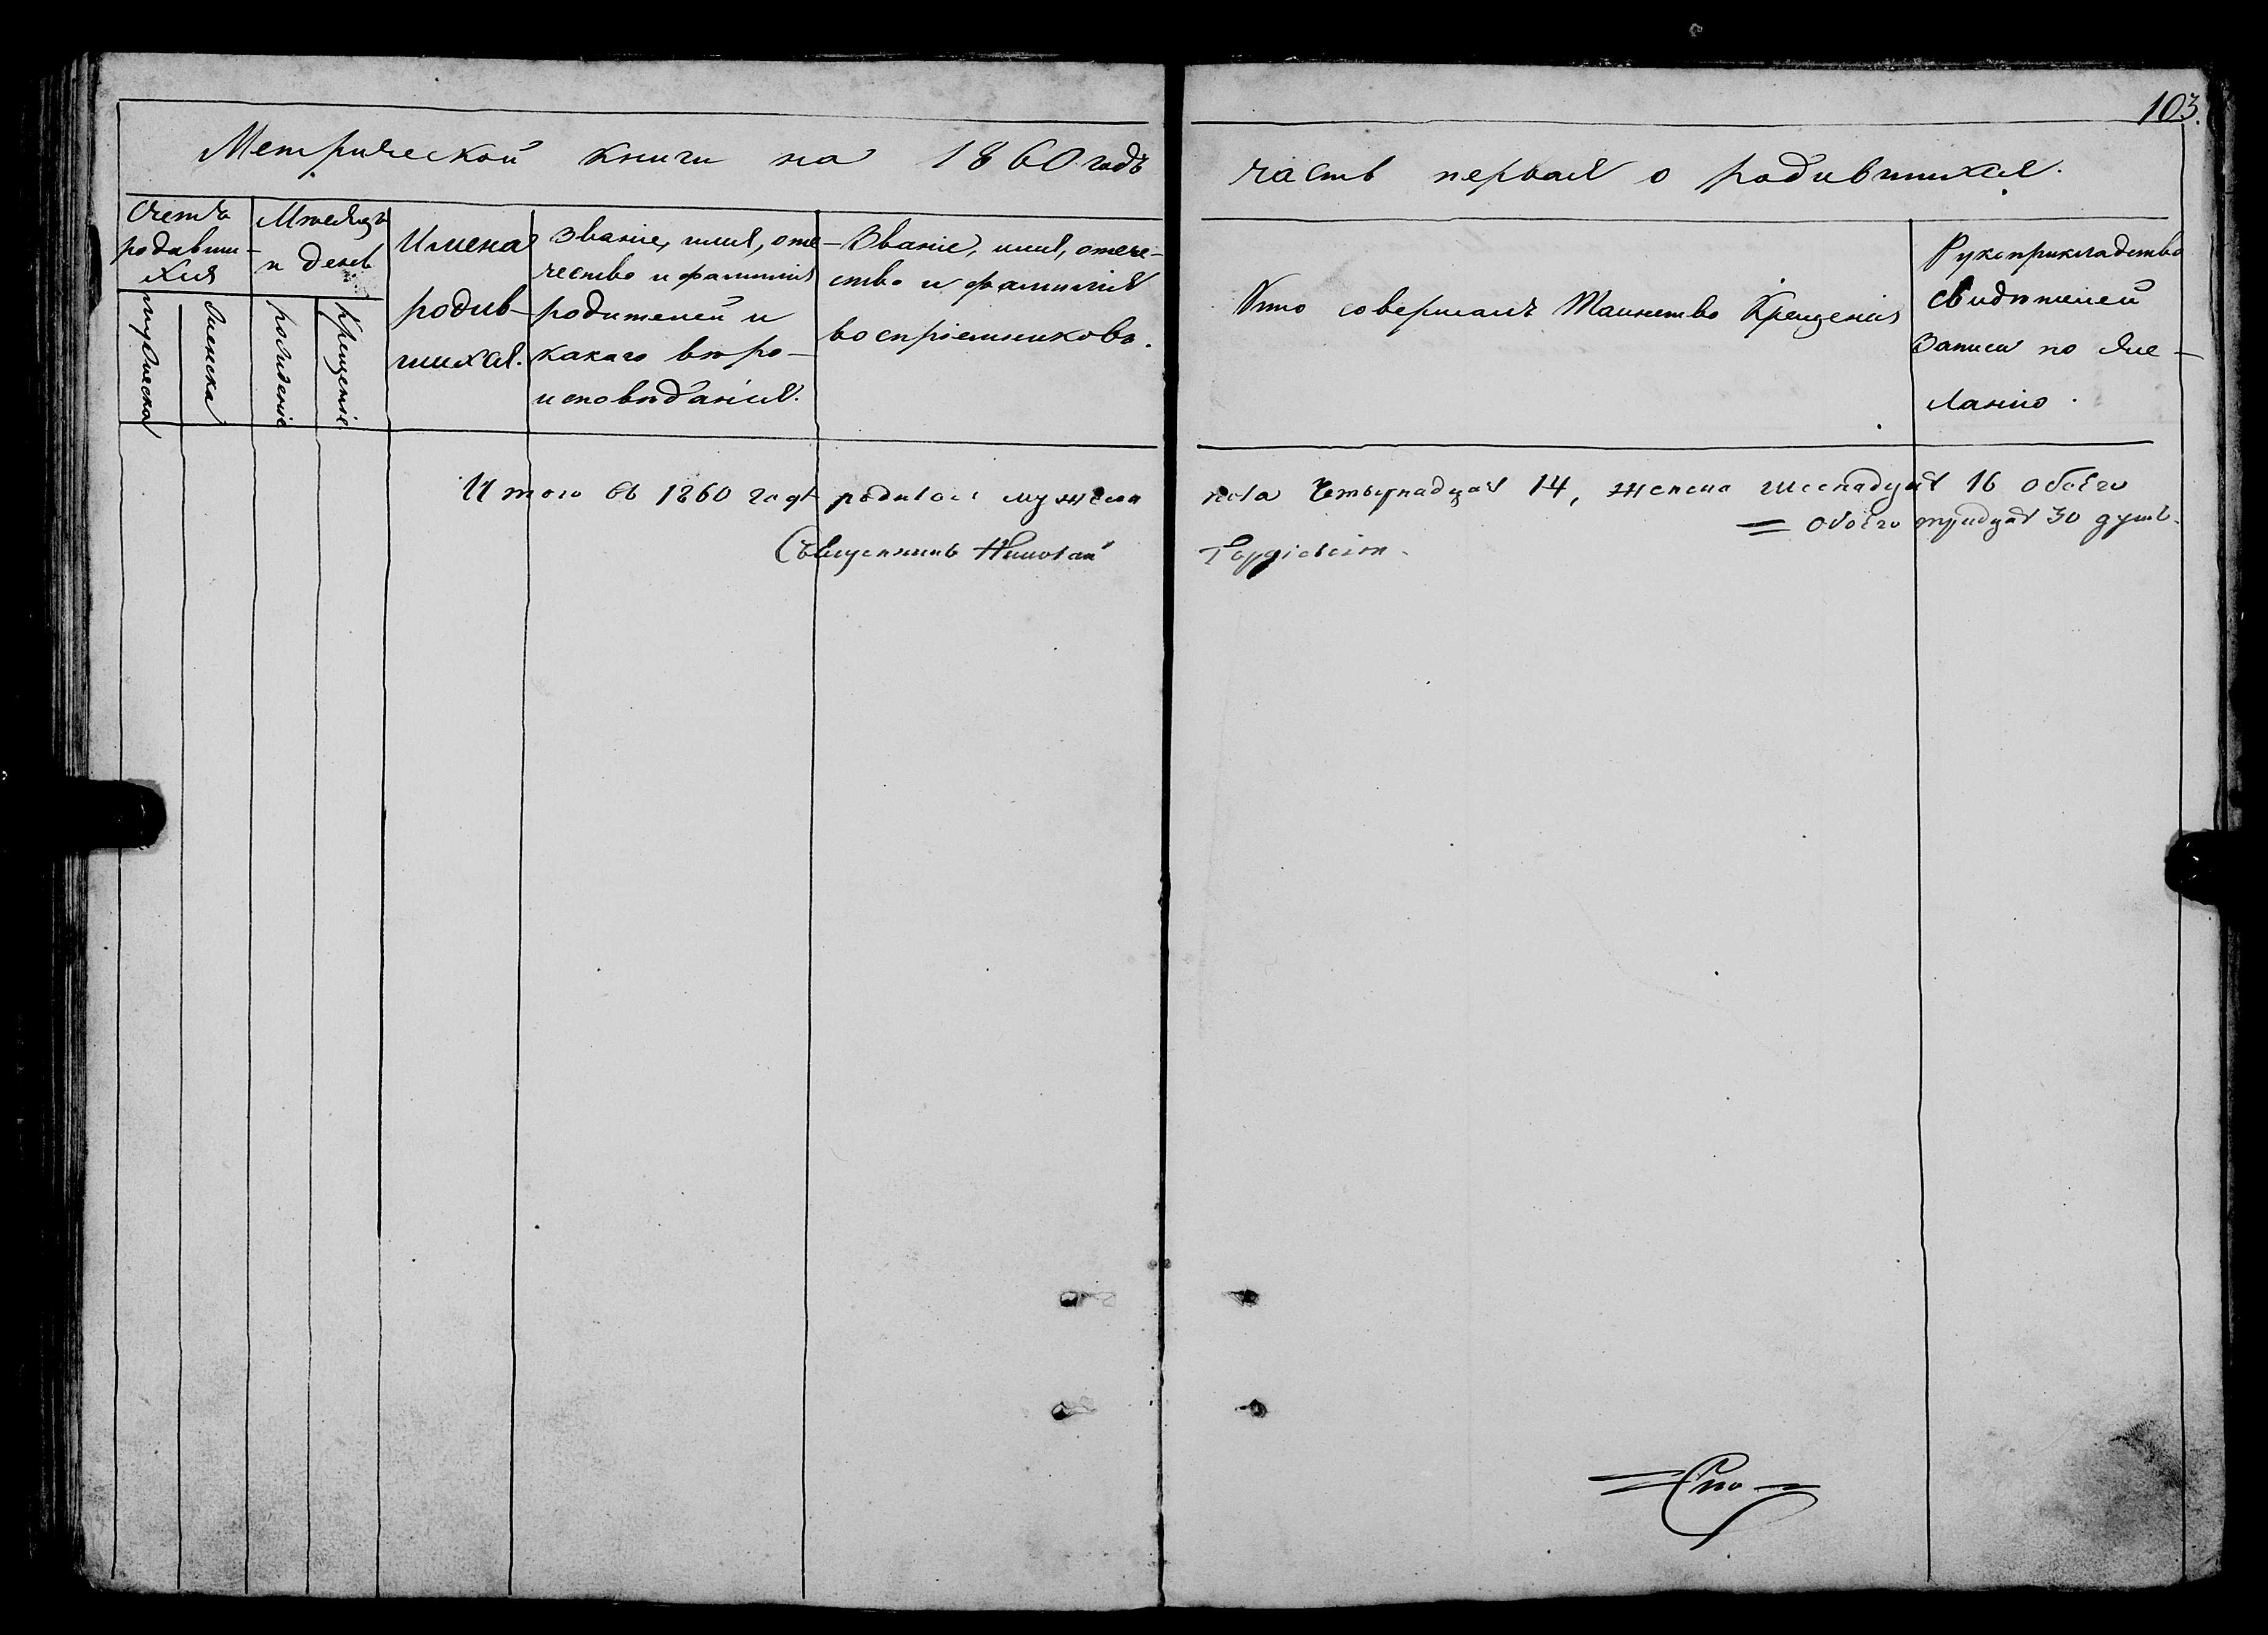 103.
Метрической книги на 1860 годъ часть первая о родившихся.
Счетъ
родивши-
хся
Мужеска
Женска
Мѣсяцъ
и день
рожденіе
Крещеніе
Имена
родив-
шихся.
Званіе, имя, оте-
чество и фамилія
родителей и
какаго вѣро-
исповѣданія.
Званіе, имя, отече-
ство и фамилія
воспріемниковъ.
Кто совершалъ Таинство Крещенія
Рукоприкладство
свидѣтелей
записи по же-
ланію.
Итого въ 1860 годѣ родилось мужеска пола Четырнадцат 14, женска шеснадцат 16 обоего
= обоего тридцат 30 душъ.
Священникъ Николай